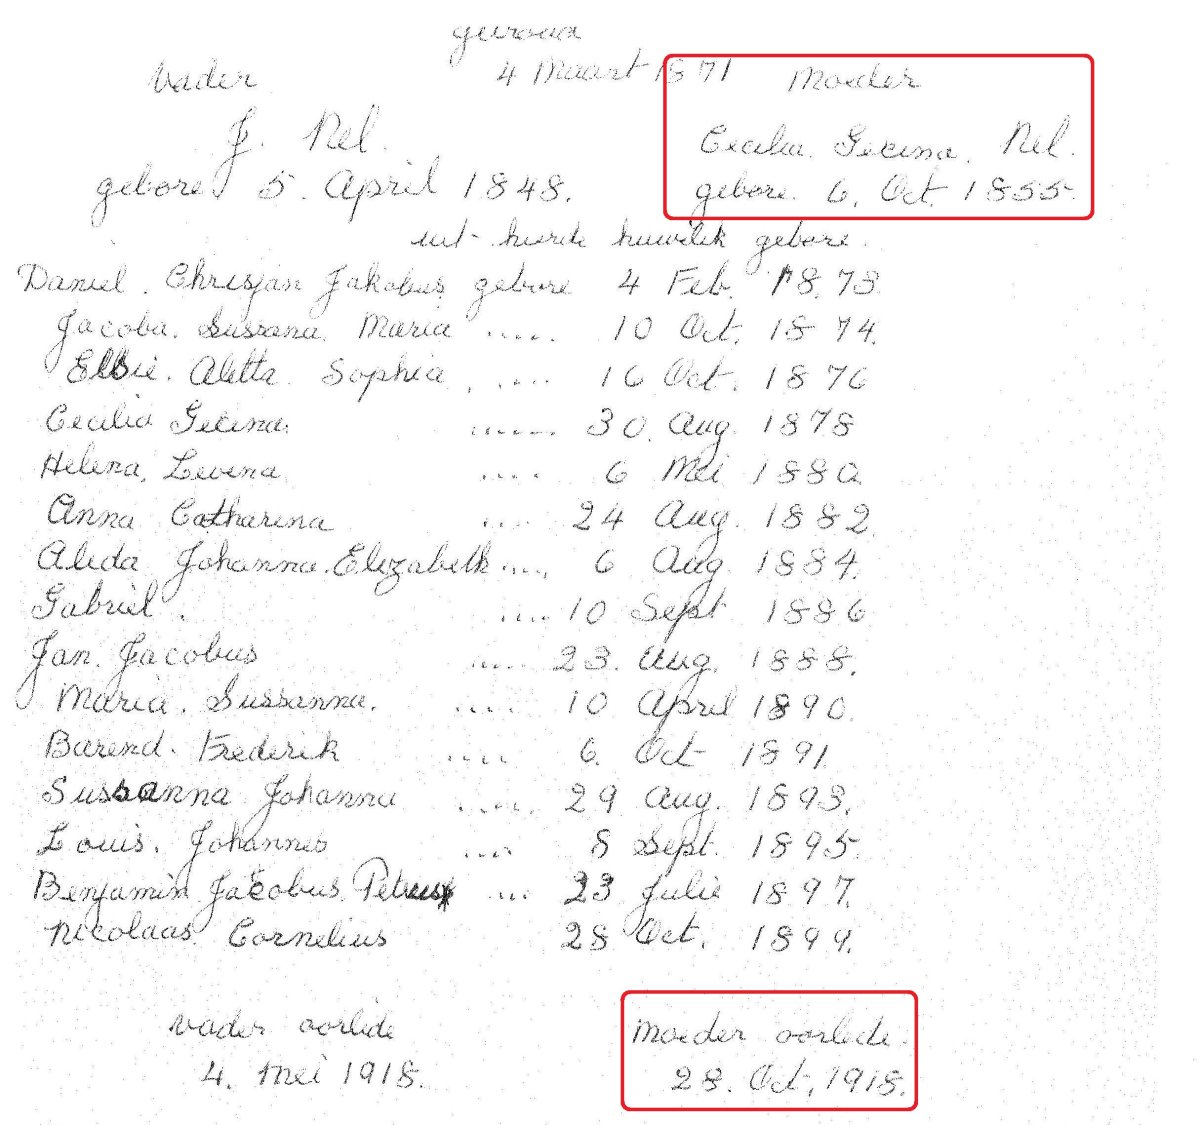 getroud
4 Maart 1871
Vader
Moeder
J. Nel.
Cecilia Gecina. Nel.
gebore 5. April 1848.
gebore. 6. Oct. 1855.
uit hierde huwelik gebore.
Daniel. Chrisjan Jakobus gebore 4 Feb. 1873.
Jacoba. Sussana. Maria .... 10 Oct. 1874.
Elsie. Aletta. Sophia. .... 16 Oct. 1876
Cecilia Gecina. ...... 30. Aug. 1878
Helena, Levina .... 6 Mei 1880.
Anna Catharina .... 24 Aug. 1882.
Aleda Johanna. Elizabeth .... 6 Aug. 1884.
Gabriel. .... 10 Sept 1886
Jan. Jacobus .... 23. Aug. 1888.
Maria. Sussanna. .... 10 April 1890.
Barend. Frederik .... 6. Oct 1891.
Sussanna Johanna .... 29 Aug. 1893.
Louis. Johannes .... 8 Sept. 1895.
Benjamin Jacobus Petrus ... 23 Julie 1897.
Nicolaas Cornelius 28 Oct. 1899.
Vader oorlede
Moeder oorlede.
4. Mei 1918.
28. Oct, 1918.